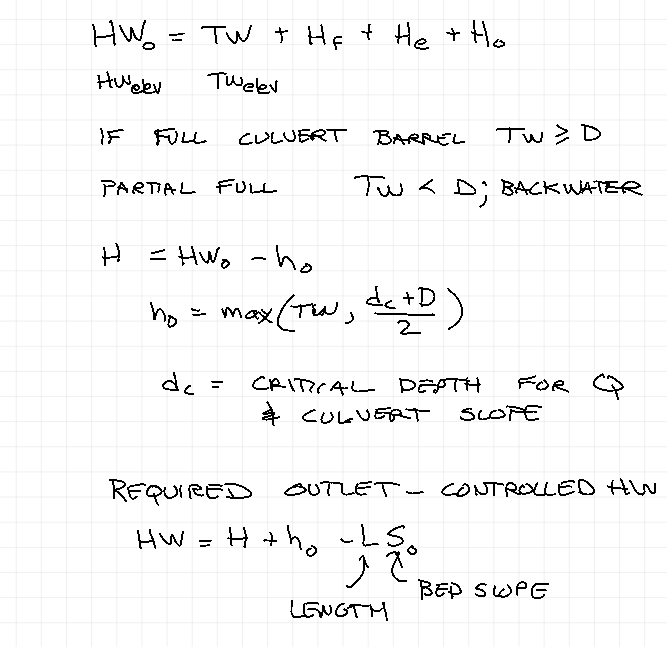 HW₀ = TW + H_f + H_e + H₀
HW_elev TW_elev
IF FULL CULVERT BARREL TW ≥ D
PARTIAL FULL TW < D; BACKWATER
H = HW₀ - h₀
h₀ = max(TW, (d_c + D)/2)
d_c = CRITICAL DEPTH FOR Q
& CULVERT SLOPE
REQUIRED OUTLET - CONTROLLED HW
HW = H + h₀ - LS₀
BED SLOPE
LENGTH